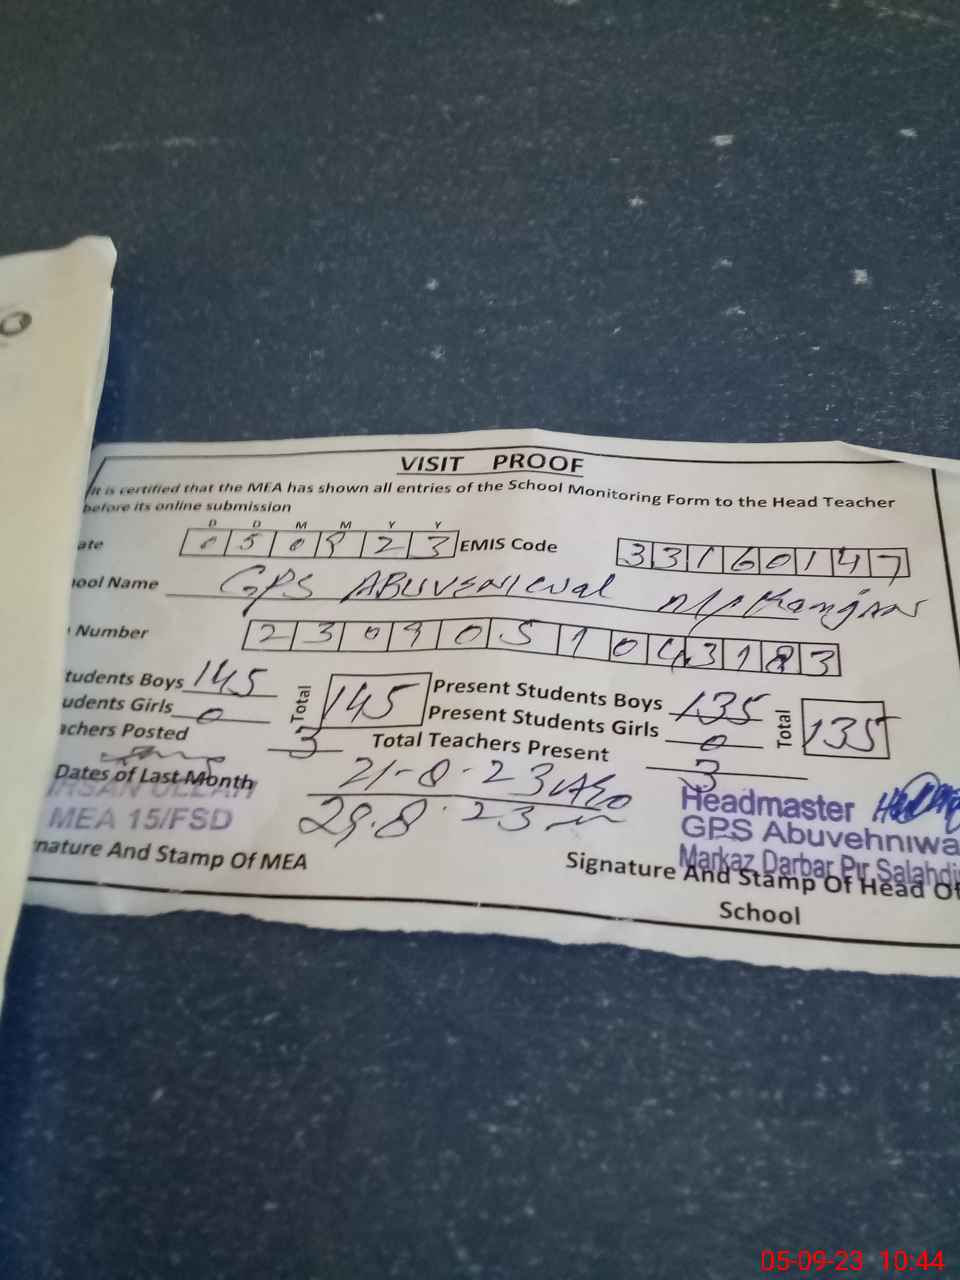 VISIT PROOF
It is certified that the MEA has shown all entries of the School Monitoring Form to the Head Teacher
before its online submission
D D M M Y Y
ate 0 5 0 9 2 3 EMIS Code 3 3 1 6 0 1 4 7
ool Name GPS ABUVENIWAL
Number 2 3 0 9 0 5 1 0 4 3 1 8 3
tudents Boys 145 Total 145 Present Students Boys 135 Total 135
udents Girls 0 Present Students Girls 0
achers Posted 3 Total Teachers Present 3
Dates of Last Month 21-8-23
29.8.23
IHSAN ULLAH
MEA 15/FSD
Headmaster
GPS Abuvehniwa
Markaz Darbar Pir Salahdi
nature And Stamp Of MEA
Signature And Stamp Of Head Of
School
05-09-23 10:44